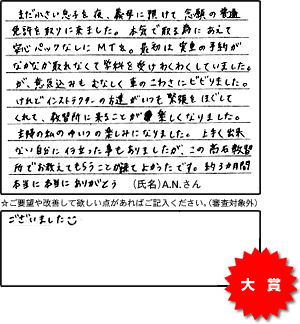 まだ小さい息子を夜、義母に預けて念願の普通
免許を取りに来ました。本気で取る為にあえて
安心パックなしにMTを。最初は実車の予約が
なかなか取れなくて学科を受けわくわくしていました。
が、意気込みもむなしく車のこわさにビビりました。
けれどインストラクターの方達がいつも緊張をほぐして
くれて、教習所に来ることが楽しくなりました。
主婦の私のゆいつの楽しみになりました。上手く出来
ない自分にイラ立った事もありましたが、この高石教習
所でお教えてもらうことが出来て良かったです。約3カ月間
本当に本当にありがとう (氏名)A.N.さん
☆ご要望や改善して欲しい点があればご記入ください。(審査対象外)
ございました
大賞